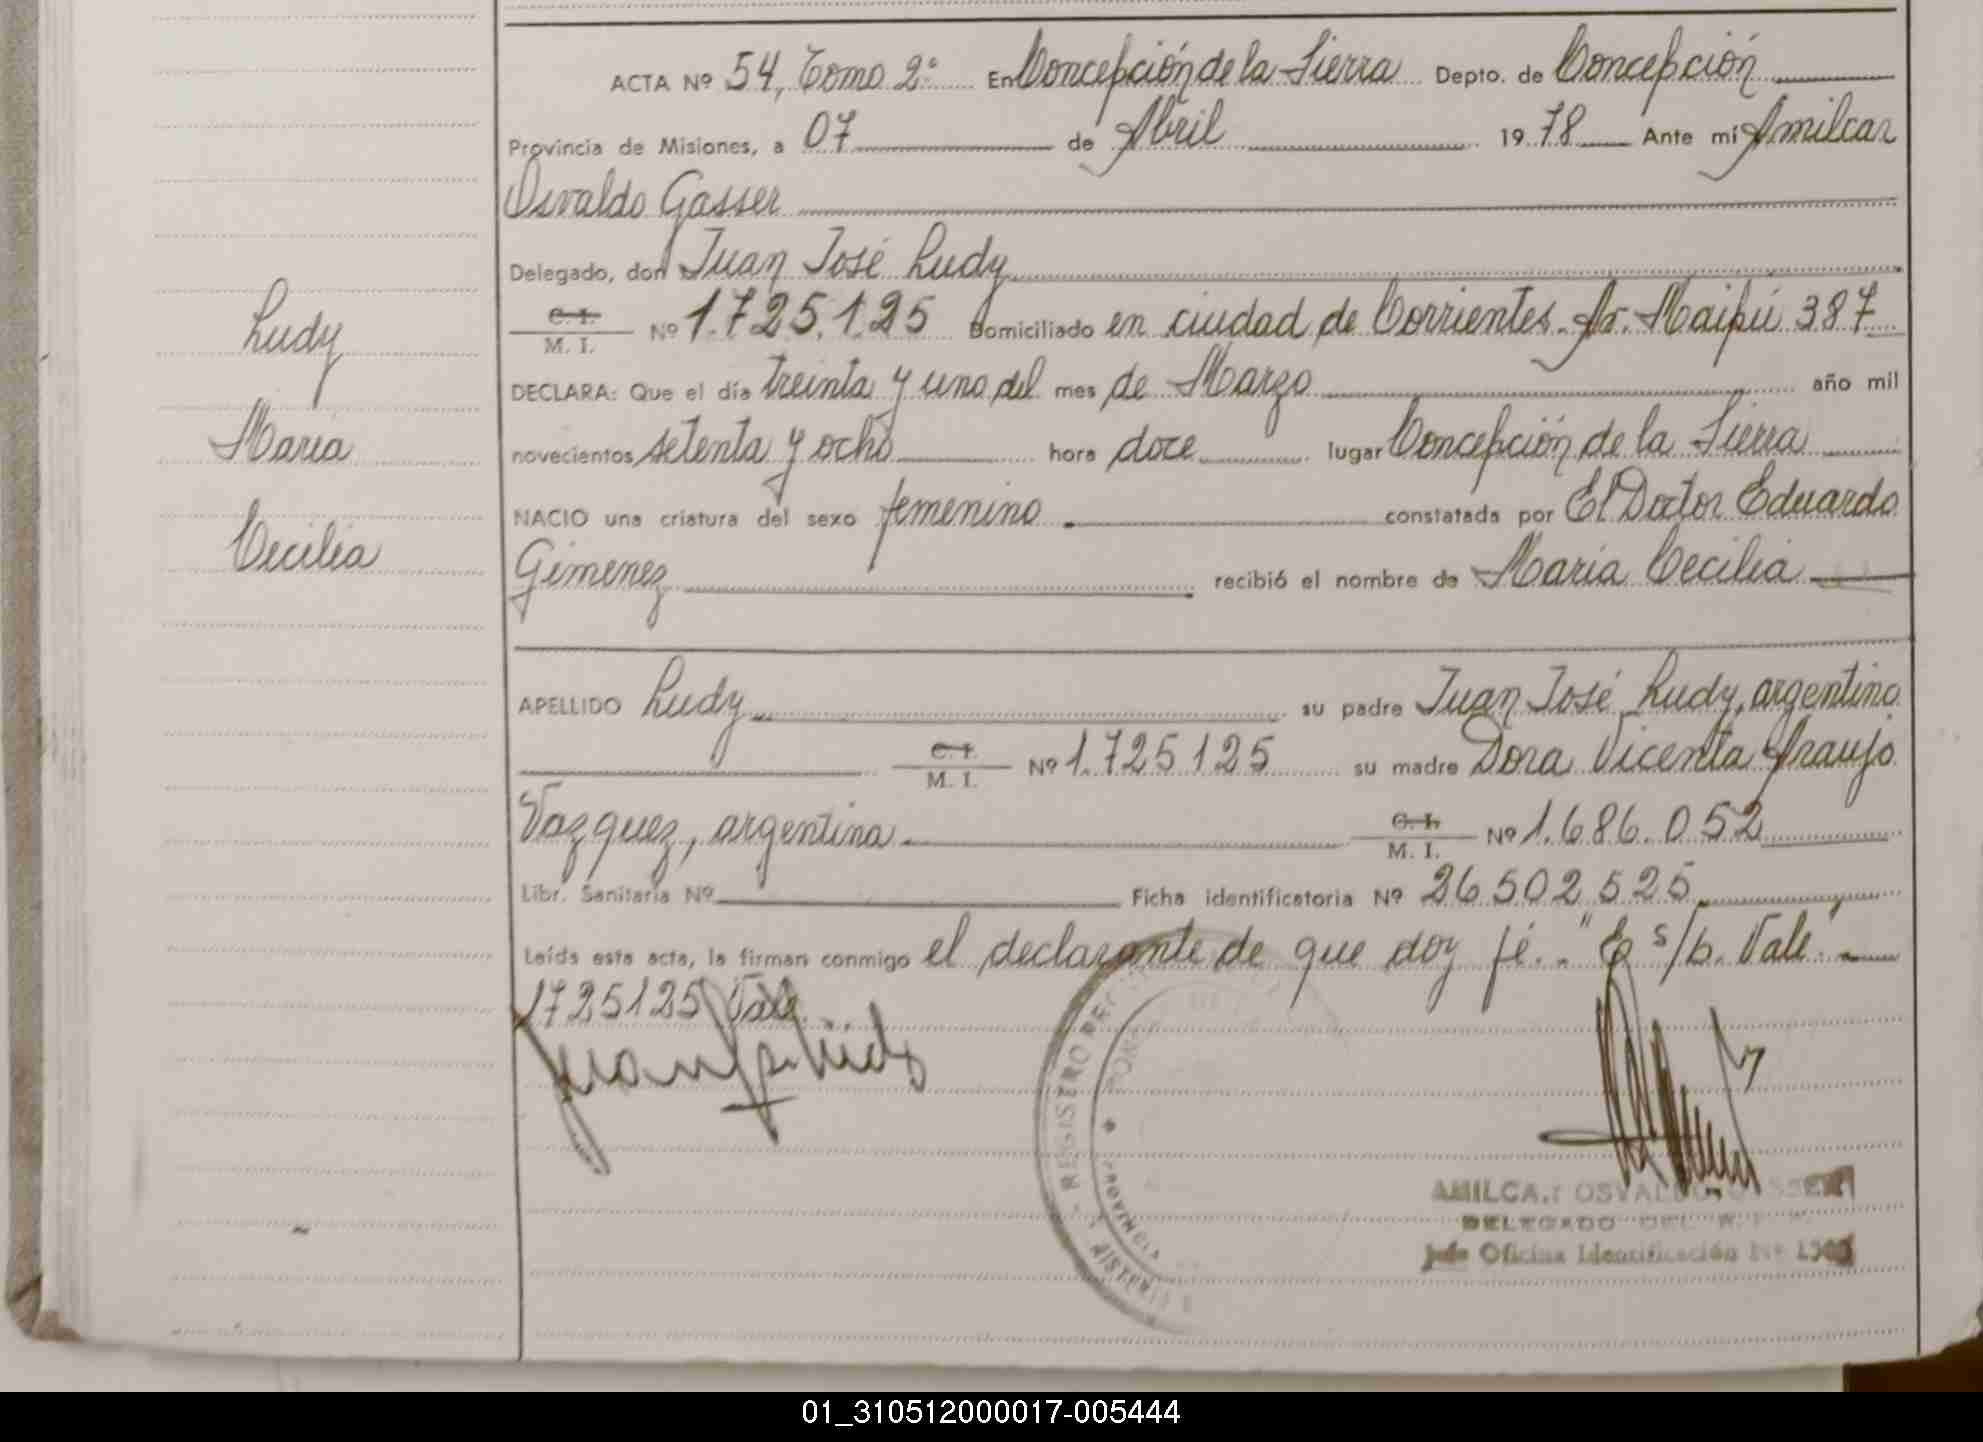 ACTA Nº 54, Tomo 2º En Concepción de la Sierra Depto. de Concepción
Provincia de Misiones, a 07 de Abril 1978 Ante mí Amilcar
Osvaldo Gasser
Delegado, don Juan José Ludy
C. I.
M. I. Nº 1.725.125 Domiciliado en ciudad de Corrientes. Av. Maipú 387
DECLARA: Que el día treinta y uno del mes de Marzo año mil
novecientos setenta y ocho hora doce lugar Concepción de la Sierra
NACIO una criatura del sexo femenino constatada por El Doctor Eduardo
Gimenez recibió el nombre de Maria Cecilia
Ludy
Maria
Cecilia
APELLIDO Ludy su padre Juan José Ludy, argentino
C. I.
M. I. Nº 1.725125 su madre Dora Vicenta Araujo
Vazquez, argentina C. I.
M. I. Nº 1.686.052
Libr. Sanitaria Nº Ficha identificatoria Nº 26502525
Leída esta acta, la firman conmigo el declarante de que doy fé. " s/b. Vale"
1725125 Vale
REGISTRO DE
PROVINCIA
MISIONES
AMILCAR OSVALDO GASSER
DELEGADO DEL
Jefe Oficina Identificación Nº
01_310512000017-005444